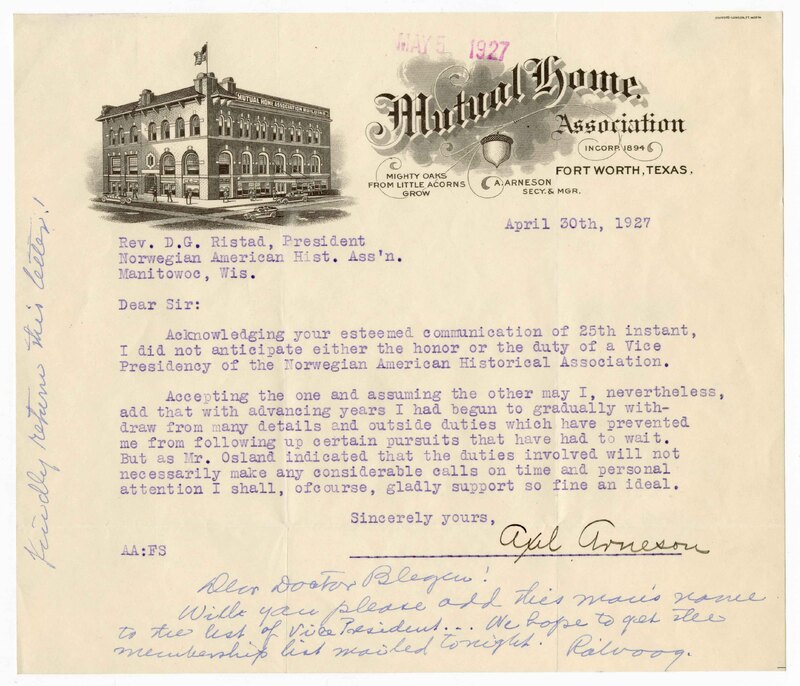 MAY 5 1927
MUTUAL HOME ASSOCIATION BUILDING
Mutual Home
Association
INCORP. 1894
FORT WORTH, TEXAS.
MIGHTY OAKS
FROM LITTLE ACORNS
GROW
A. ARNESON
SECY. & MGR.
April 30th, 1927
Rev. D.G. Ristad, President
Norwegian American Hist. Ass'n.
Manitowoc, Wis.
Dear Sir:
Acknowledging your esteemed communication of 25th instant,
I did not anticipate either the honor or the duty of a Vice
Presidency of the Norwegian American Historical Association.
Accepting the one and assuming the other may I, nevertheless,
add that with advancing years I had begun to gradually with-
draw from many details and outside duties which have prevented
me from following up certain pursuits that have had to wait.
But as Mr. Osland indicated that the duties involved will not
necessarily make any considerable calls on time and personal
attention I shall, ofcourse, gladly support so fine an ideal.
Sincerely yours,
Axel Arneson
AA:FS
Dear Doctor Blegen!
Will you please add this man's name
to the list of Vice President... We hope to get the
membership list mailed tonight. Rölvaag.
Kindly return this letter!